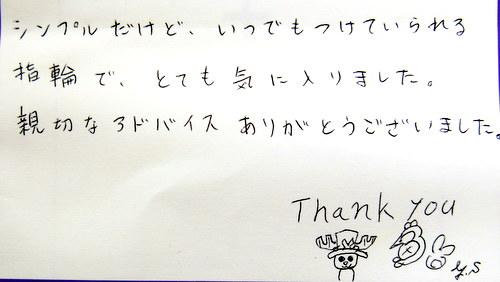 シンプルだけど、いつでもつけていられる
指輪で、とても気に入りました。
親切なアドバイスありがとうございました。
Thank you
y.s